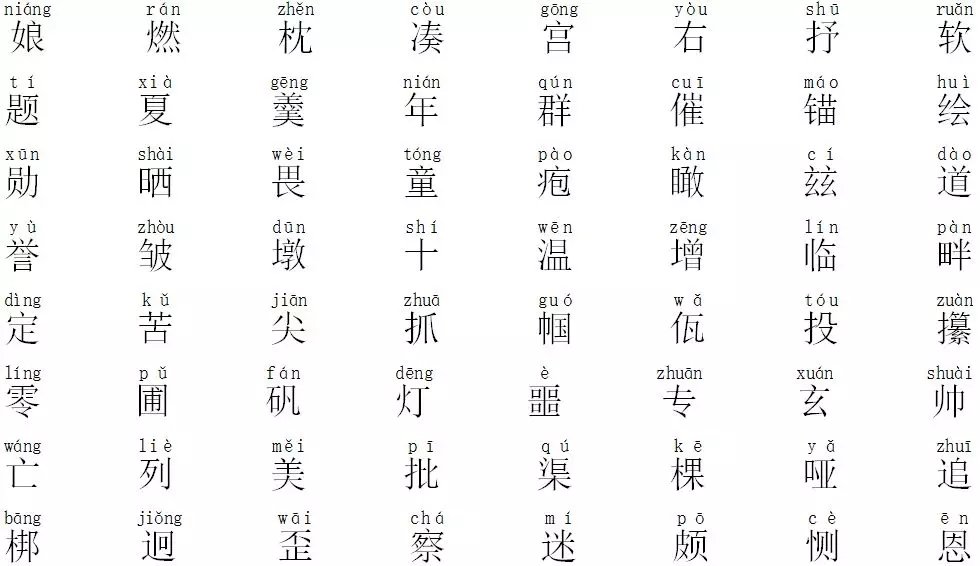 niáng rán zhěn còu gōng yòu shū ruǎn
娘 燃 枕 凑 宫 右 抒 软
tí xià gēng nián qún cuī máo huì
题 夏 羹 年 群 催 锚 绘
xūn shài wèi tóng pào kàn cí dào
勋 晒 畏 童 疱 瞰 兹 道
yù zhòu dūn shí wēn zēng lín pàn
誉 皱 墩 十 温 增 临 畔
dìng kǔ jiān zhuā guó wǎ tóu zuàn
定 苦 尖 抓 帼 佤 投 攥
líng pǔ fán dēng è zhuān xuán shuài
零 圃 矾 灯 噩 专 玄 帅
wáng liè měi pī qú kē yǎ zhuī
亡 列 美 批 渠 棵 哑 追
bāng jiǒng wāi chá mí pō cè ēn
梆 迥 歪 察 迷 颇 恻 恩